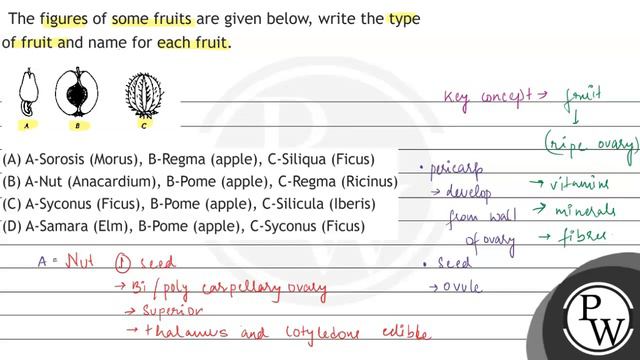 The figures of some fruits are given below, write the type
of fruit and name for each fruit.
A B C
(A) A-Sorosis (Morus), B-Regma (apple), C-Siliqua (Ficus)
(B) A-Nut (Anacardium), B-Pome (apple), C-Regma (Ricinus)
(C) A-Syconus (Ficus), B-Pome (apple), C-Silicula (Iberis)
(D) A-Samara (Elm), B-Pome (apple), C-Syconus (Ficus)
Key concept → fruit
↓
(ripe ovary)
• pericarp
→ develop
from wall
of ovary
• seed
→ ovule
→ vitamins
→ minerals
→ fibres
A = Nut ① seed
→ Bi/poly carpellary ovary
→ Superior
→ thalamus and cotyledons edible
PW